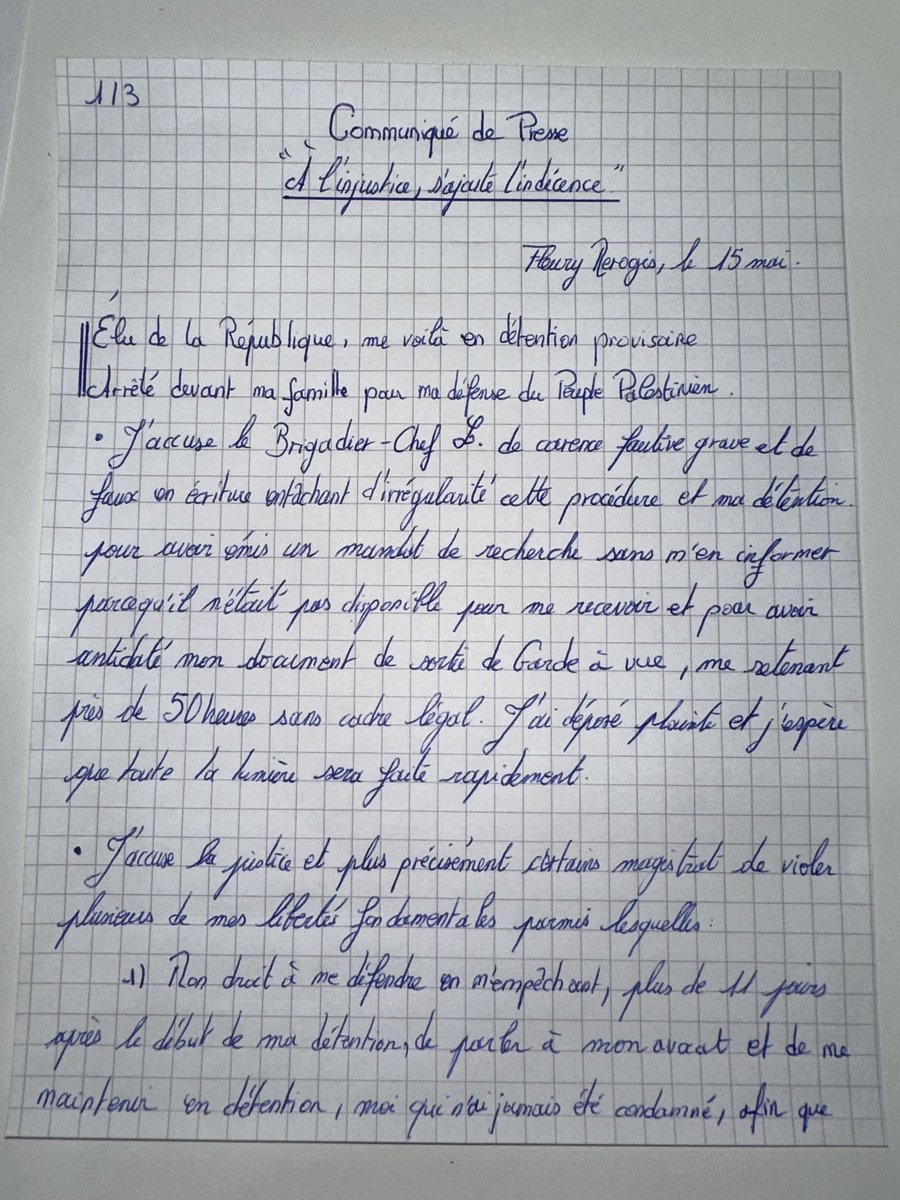 1/3
Communiqué de Presse
"À l'injustice, s'ajoute l'indécence."
Fleury Merogis, le 15 mai.
Élu de la République, me voilà en détention provisoire
Arrêté devant ma famille pour ma défense du Peuple Palestinien.
• J'accuse le Brigadier-Chef L. de carence fautive grave et de
faux en écriture entâchant d'irrégularité cette procédure et ma détention.
pour avoir émis un mandat de recherche sans m'en informer
parcequ'il n'était pas disponible pour me recevoir et pour avoir
antidaté mon document de sortie de Garde à vue, me retenant
près de 50 heures sans cadre légal. J'ai déposé plainte et j'espère
que toute la lumière sera faite rapidement.
• J'accuse la justice et plus précisément certains magistrat de violer
plusieurs de mes libertés fondamentales parmis lesquelles:
1) Mon droit à me défendre en m'empêchant, plus de 11 jours
après le début de ma détention, de parler à mon avocat et de me
maintenir en détention, moi qui n'ai jamais été condamné, afin que